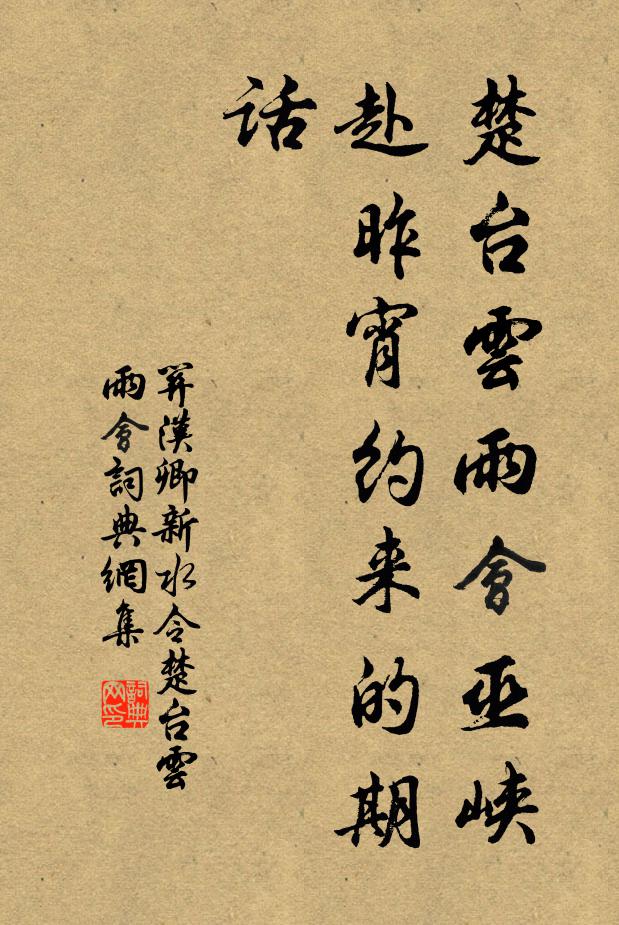 楚台雲雨會巫峽
赴昨宵約来的期
话
関漢卿新水令楚台雲
雨會詞典網集
詞典网印